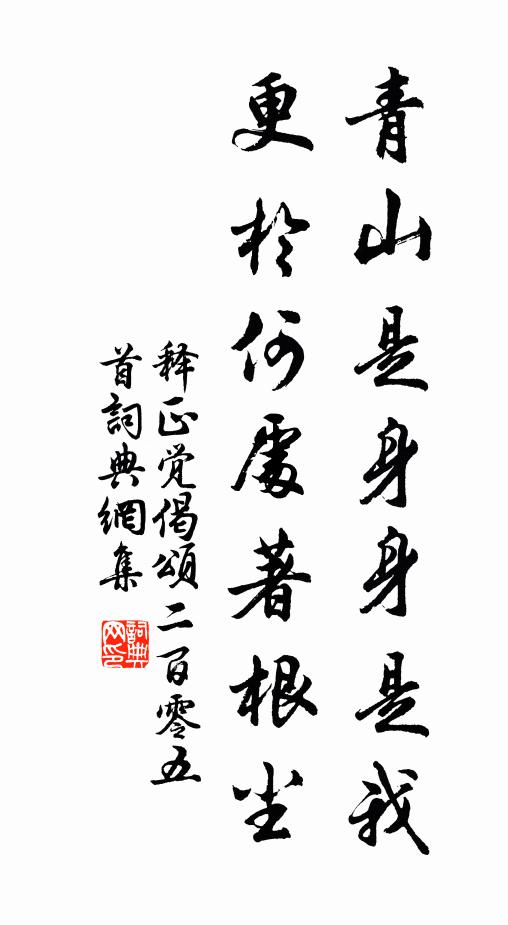 青山是身身是我
更於何處著根尘
释正觉偈頌二百零五
首詞典網集
詞典网印